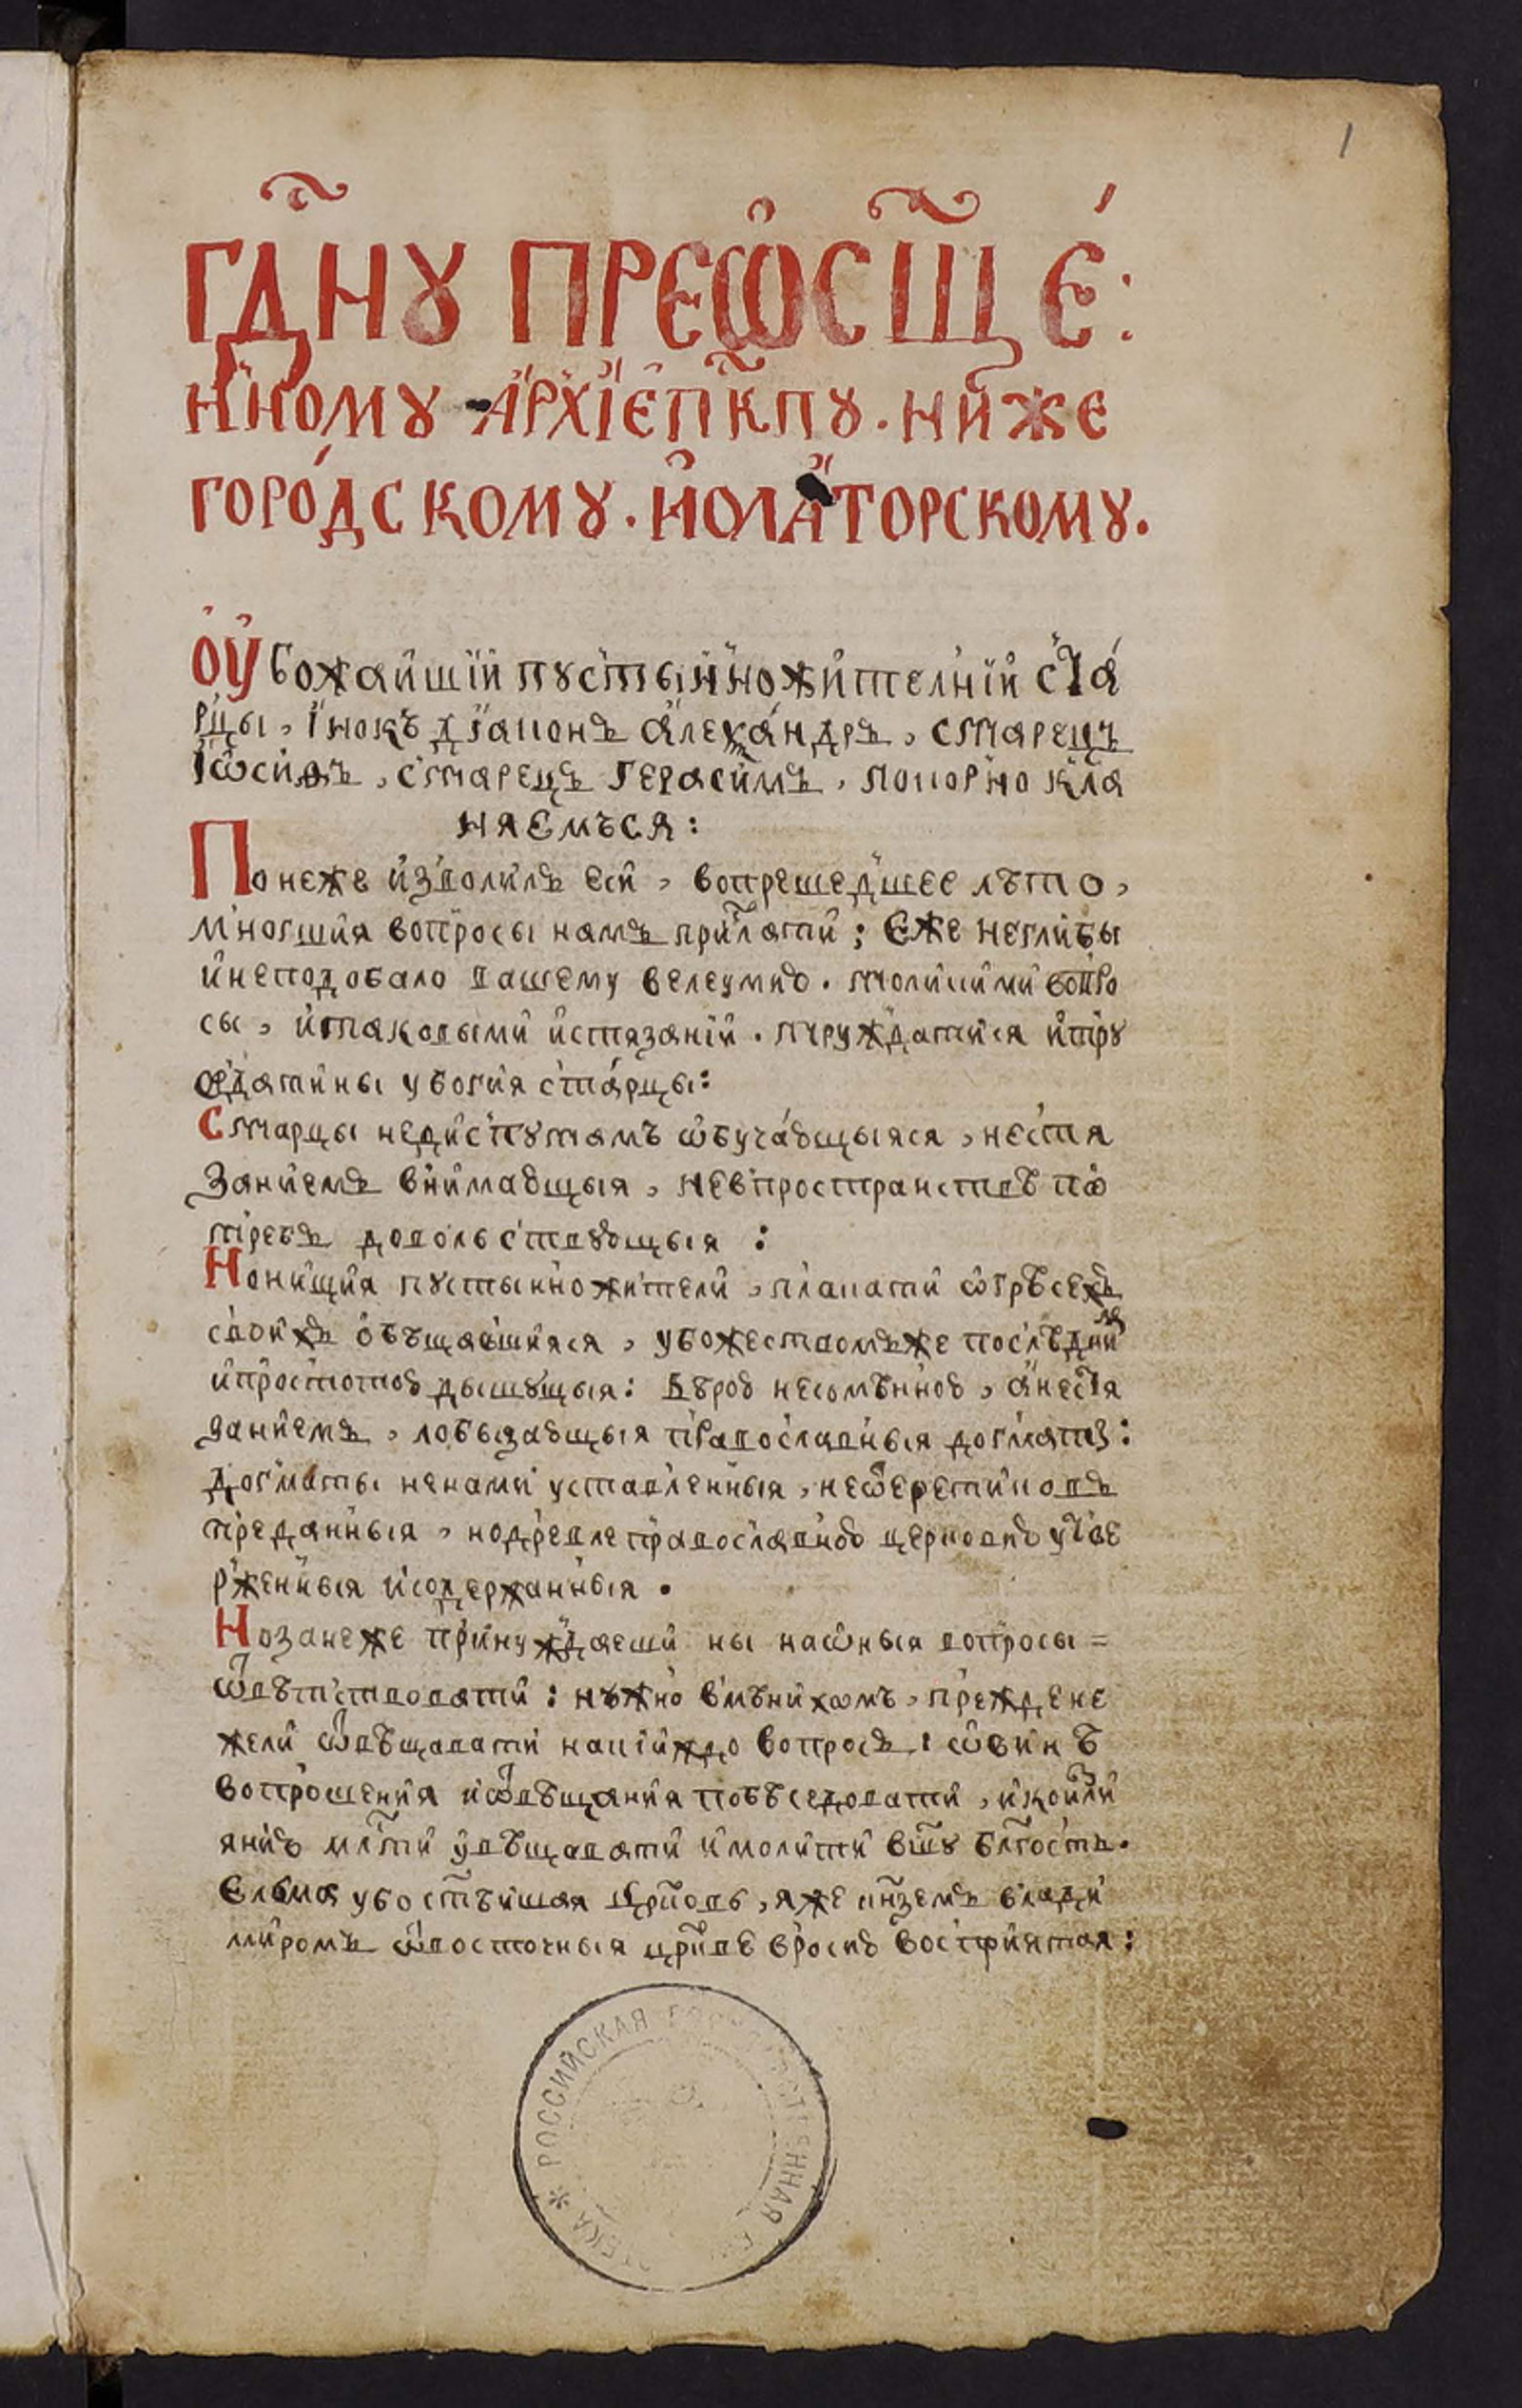 1
гдⷭ҇нꙋ преѡсщ҃е:
нному архїепⷭ҇кпꙋ. ниже
городскомꙋ. иолаторскомꙋ.
оубожайшїи пꙋстынножителнїи ста
рцы, їнокъ дїаконъ алеѯандръ, старецъ
їѡсифъ, старецъ герасимъ, покорно кла
няемъся:
Понеже изволилъ еси, вопрешедшее лѣто,
многшия вопросы намъ прислати; Еже неглибы
инеподобало вашему велеумию. толикими вопро
сы, итаковыми истязанїи. труждатися итрꙋ
ждатины убогия старцы:
Старцы недиспꙋтамъ ѡбучающыяся, нестя
заниемъ внимающыя, невпространствѣ пѡ
требъ доволствꙋющыя :
Нонищия пꙋстынножители, плакати ѡгрѣсехъ
своихъ обѣщавшияся, убожествомъже послѣднимъ
ипростотою дышꙋщыя: вѣрою несомѣнною, анестя
заниемъ, лобызающыя православныя догматы:
догматы ненами уставленныя, неѿеретиковъ
преданныя, нодревлеправославною церковию утве
рженныя исодержанныя.
Нозанеже принуждаеши ны наѡныя вопросы =
ѿвѣтствовати: нѣжно вмѣнихомъ, преждене
жели ѿвѣщавати накїиждо вопросъ: ѡвинѣ
вопрошения иѿвѣщания побѣседовати, икоизли
янию млⷭ҇ти увѣщавати имолити вашꙋ блгость.
Елма убо ст҃ѣйшая црⷦ҇овь, яже кнⷽземъ влади
миромъ ѿвосточныя црⷦ҇ве вросию восприятая:
РОССИЙСКАЯ ГОСУДАРСТВЕННАЯ